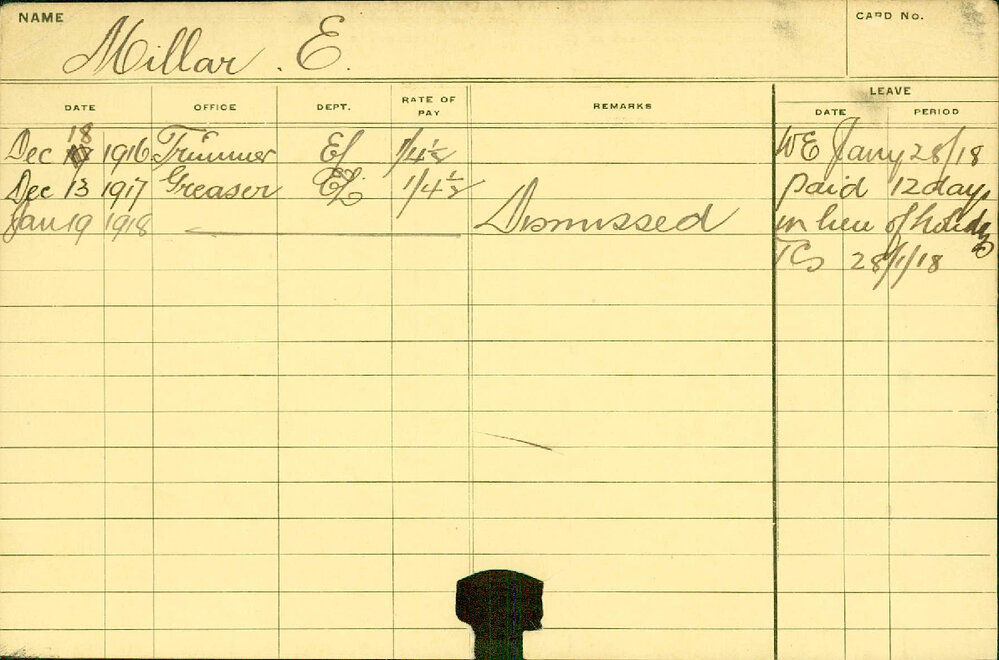 NAME
Millar. E.
CARD No.
DATE OFFICE DEPT. RATE OF PAY REMARKS LEAVE
DATE PERIOD
Dec 18 1916 Trimmer EL 1/4½ WE Jany 28/18
Dec 13 1917 Greaser EL 1/4½ paid 12 days
Jan 19 1918 Dismissed in lieu of holidays
TCs 28/1/18